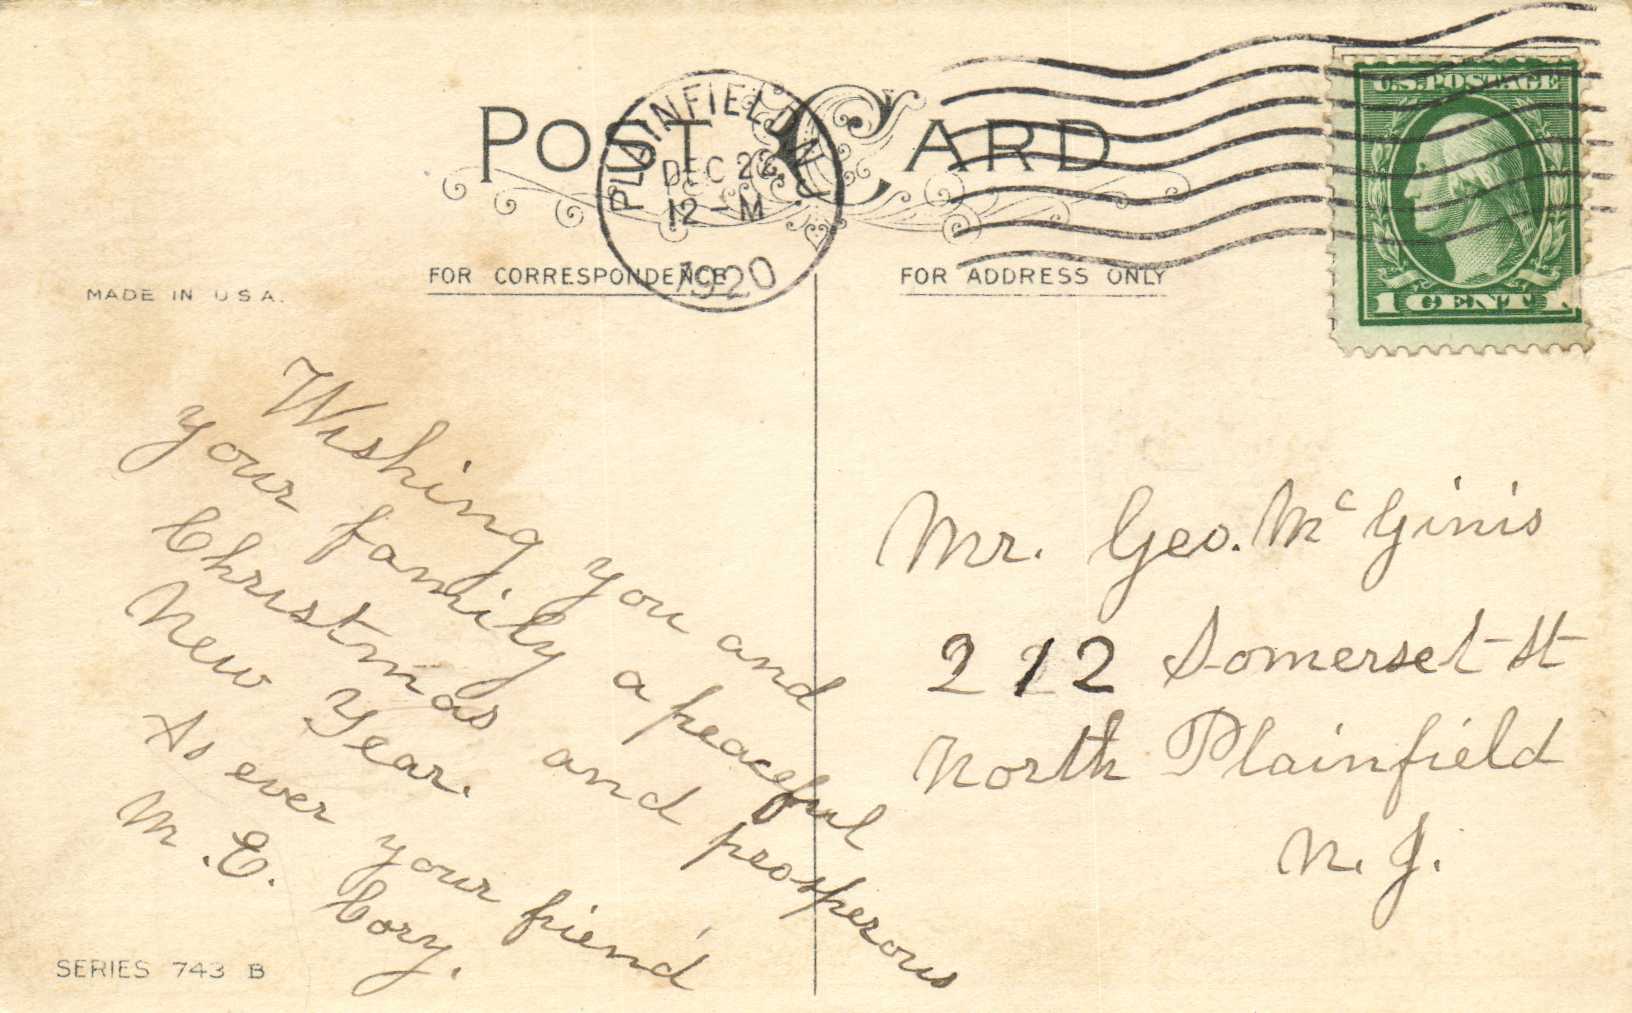 POST CARD
PLAINFIELD, N.J.
DEC 2
12-M
1920
U.S. POSTAGE
1 CENT 1
FOR CORRESPONDENCE
FOR ADDRESS ONLY
MADE IN U.S.A.
Wishing you and
your family a peaceful
Christmas and prosperous
New Year.
As ever your friend
M. E. Cory.
Mr. Geo. Mc Ginis
212 Somerset St
North Plainfield
N. J.
SERIES 743 B